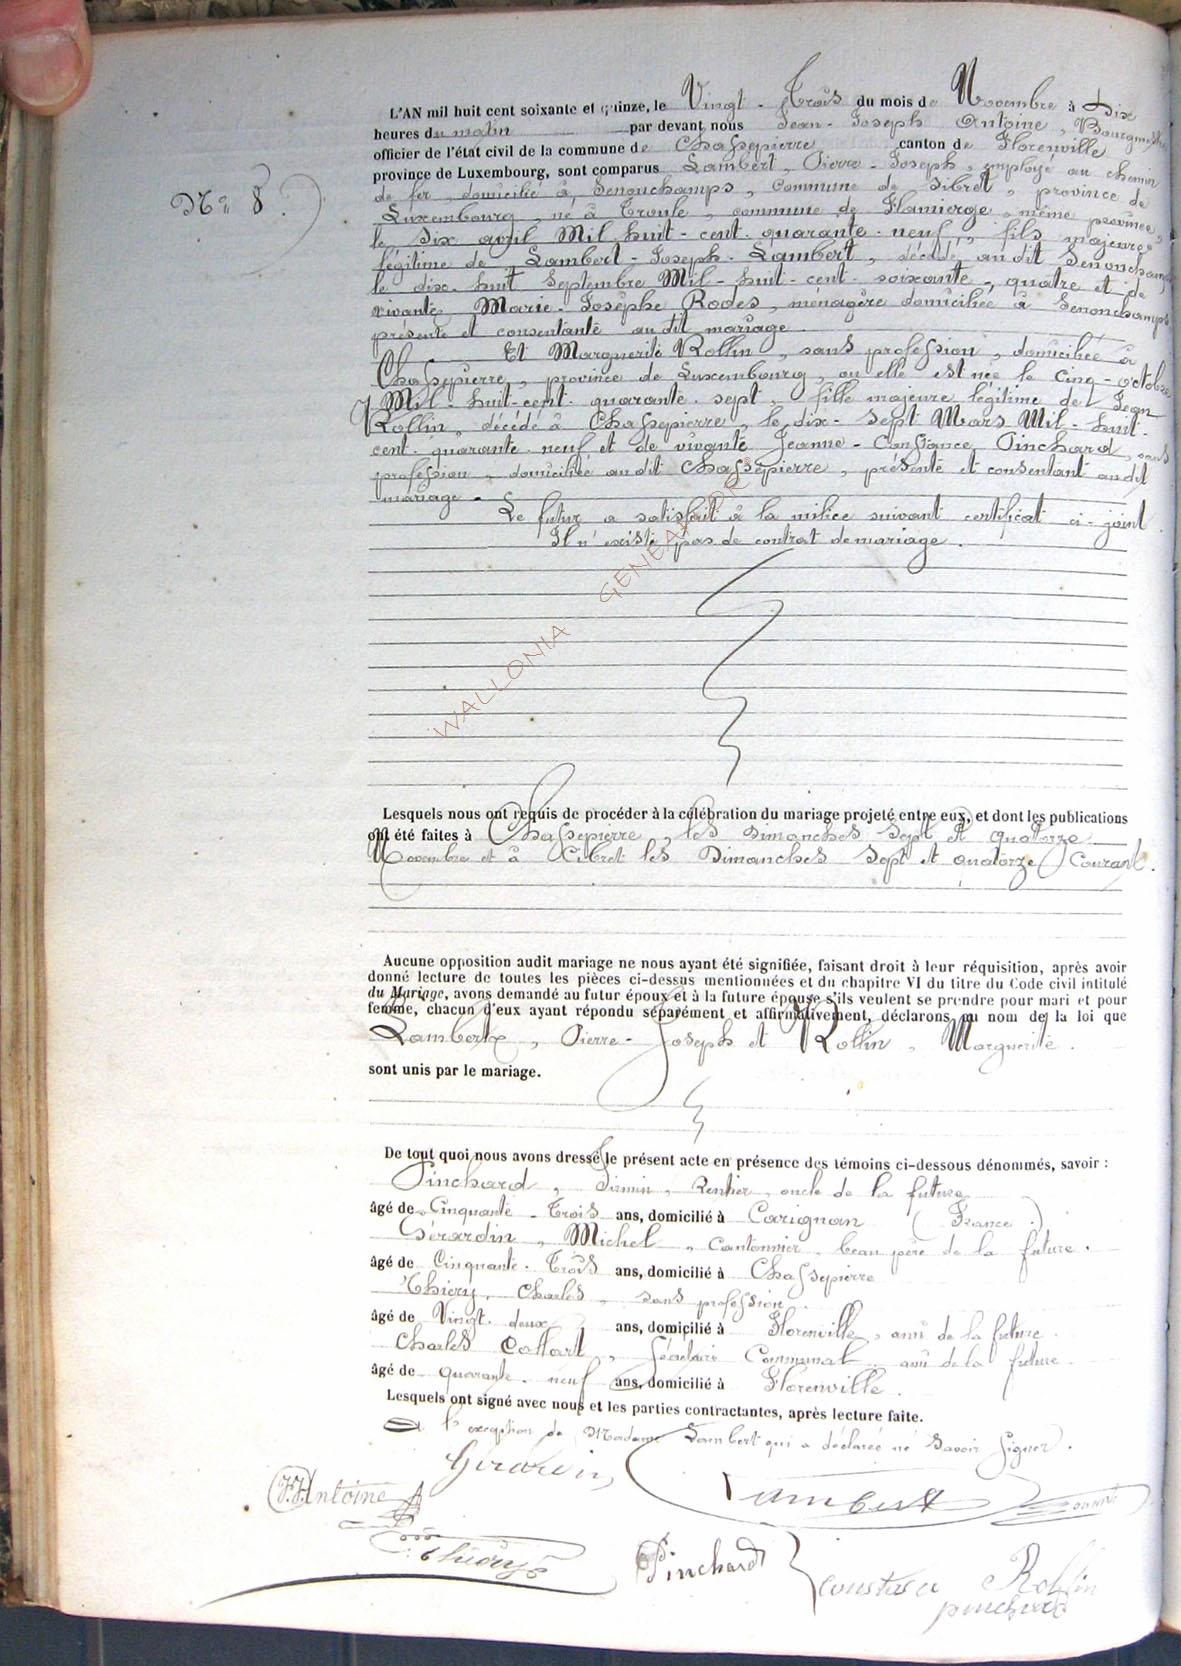 N° 8.
L'AN mil huit cent soixante et quinze, le Vingt-Trois du mois de Novembre à Dix
heures du matin par devant nous Jean-Joseph Antoine, Bourgmestre
officier de l'état civil de la commune de Chassepierre canton de Florenville
province de Luxembourg, sont comparus Lambert, Pierre-Joseph, employé au chemin
de fer, domicilié à Senonchamps, Commune de Sibret, province de
Luxembourg, né à Troule, commune de Flamierge, même province,
le six avril Mil huit-cent-quarante-neuf, fils majeure
légitime de Lambert-Joseph-Lambert, décédé au dit Senonchamps
le dix-huit Septembre Mil-huit-cent-soixante-quatre et de
vivante Marie-Josèphe Rodes, ménagère domiciliée à Senonchamps
présente et consentante au dit mariage
Et Marguerite Rollin, sans profession, domiciliée à
Chassepierre, province de Luxembourg, où elle est née le cinq-octobre
Mil-huit-cent-quarante-sept, fille majeure légitime de Jean
Rollin, décédé à Chassepierre, le dix-sept Mars Mil-huit-
cent-quarante-neuf et de vivante Jeanne-Constance Pinchard, sans
profession, domiciliée au dit Chassepierre, présente et consentant au dit
mariage.
Le futur a satisfait à la milice suivant certificat ci-joint.
Il n'existe pas de contrat de mariage.
WALLONIA GENEA
Lesquels nous ont requis de procéder à la célébration du mariage projeté entre eux, et dont les publications
ont été faites à Chassepierre, les Dimanches sept et quatorze
Novembre et à Cibret les Dimanches sept et quatorze Courant.
Aucune opposition audit mariage ne nous ayant été signifiée, faisant droit à leur réquisition, après avoir
donné lecture de toutes les pièces ci-dessus mentionnées et du chapitre VI du titre du Code civil intitulé
du Mariage, avons demandé au futur époux et à la future épouse s'ils veulent se prendre pour mari et pour
femme, chacun d'eux ayant répondu séparément et affirmativement, déclarons au nom de la loi que
Lambert, Pierre-Joseph et Rollin, Marguerite.
sont unis par le mariage.
De tout quoi nous avons dressé le présent acte en présence des témoins ci-dessous dénommés, savoir :
Pinchard, Firmin, Rentier, oncle de la future
âgé de Cinquante-Trois ans, domicilié à Carignan (France.)
Gérardin, Michel, Cantonnier, beau père de la future.
âgé de Cinquante-Trois ans, domicilié à Chassepierre
Thiery, Charles, sans profession
âgé de Vingt-deux ans, domicilié à Florenville, ami de la future.
Charles Collart, Sécrétaire Communal, ami de la future
âgé de quarante-neuf ans, domicilié à Florenville.
Lesquels ont signé avec nous et les parties contractantes, après lecture faite.
à l'exception de Madame Lambert qui a déclarée né savoir signer.
Girardin,
J.J. Antoine
Lambert
Thiery
Pinchard
constance Rollin
pinchard